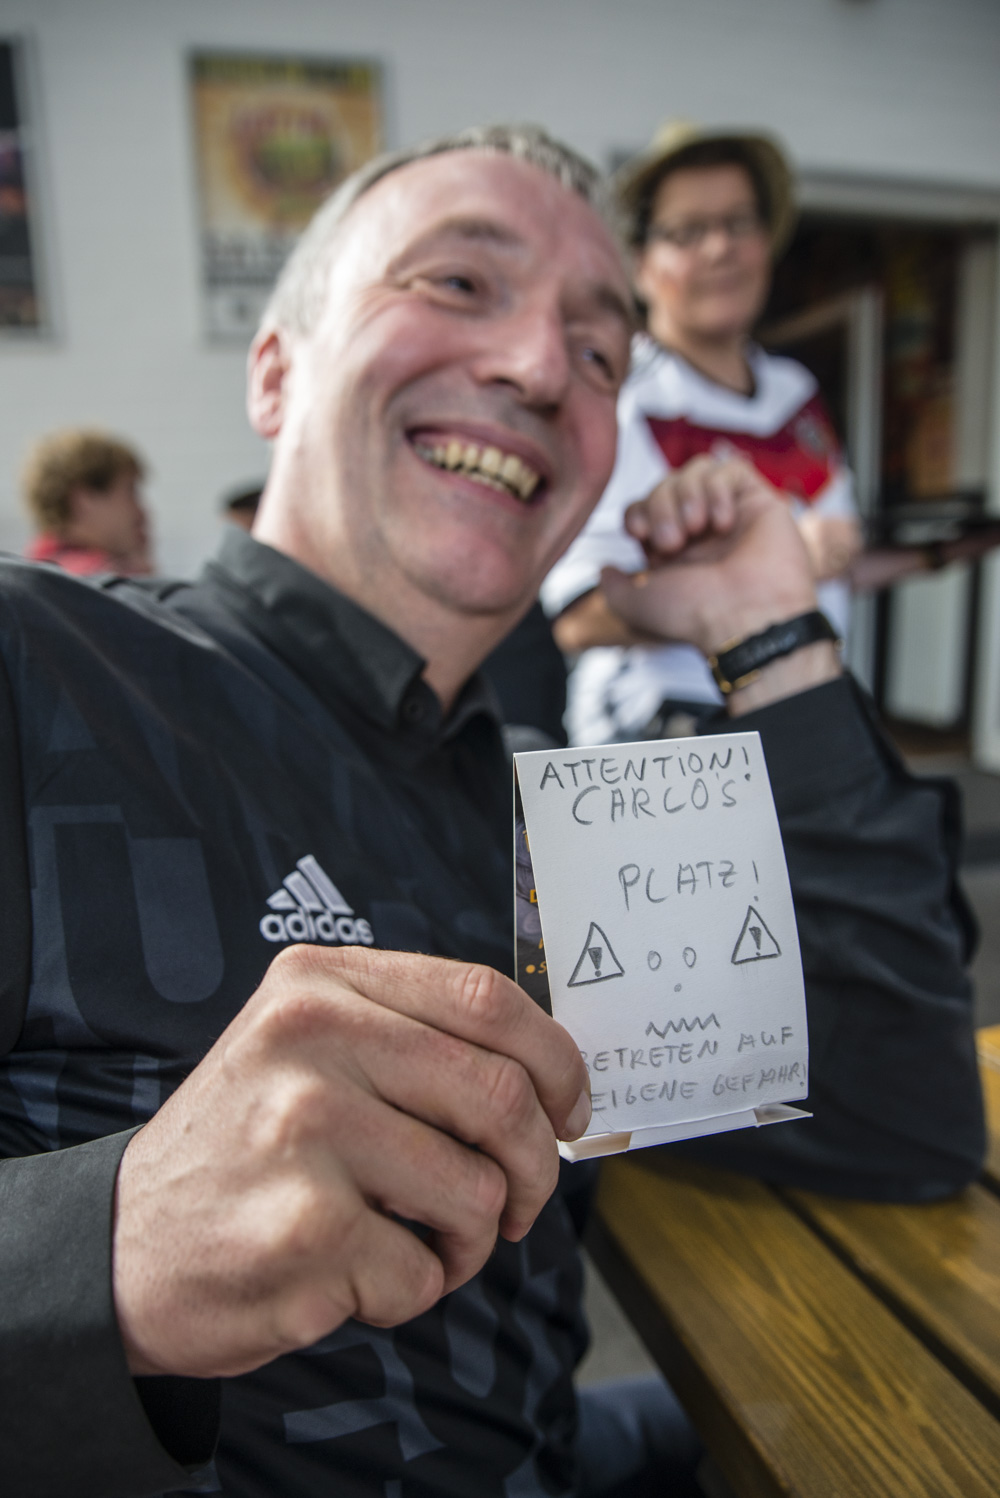 adidas
ATTENTION!
CARLO'S
PLATZ!
BETRETEN AUF
EIGENE GEFAHR!